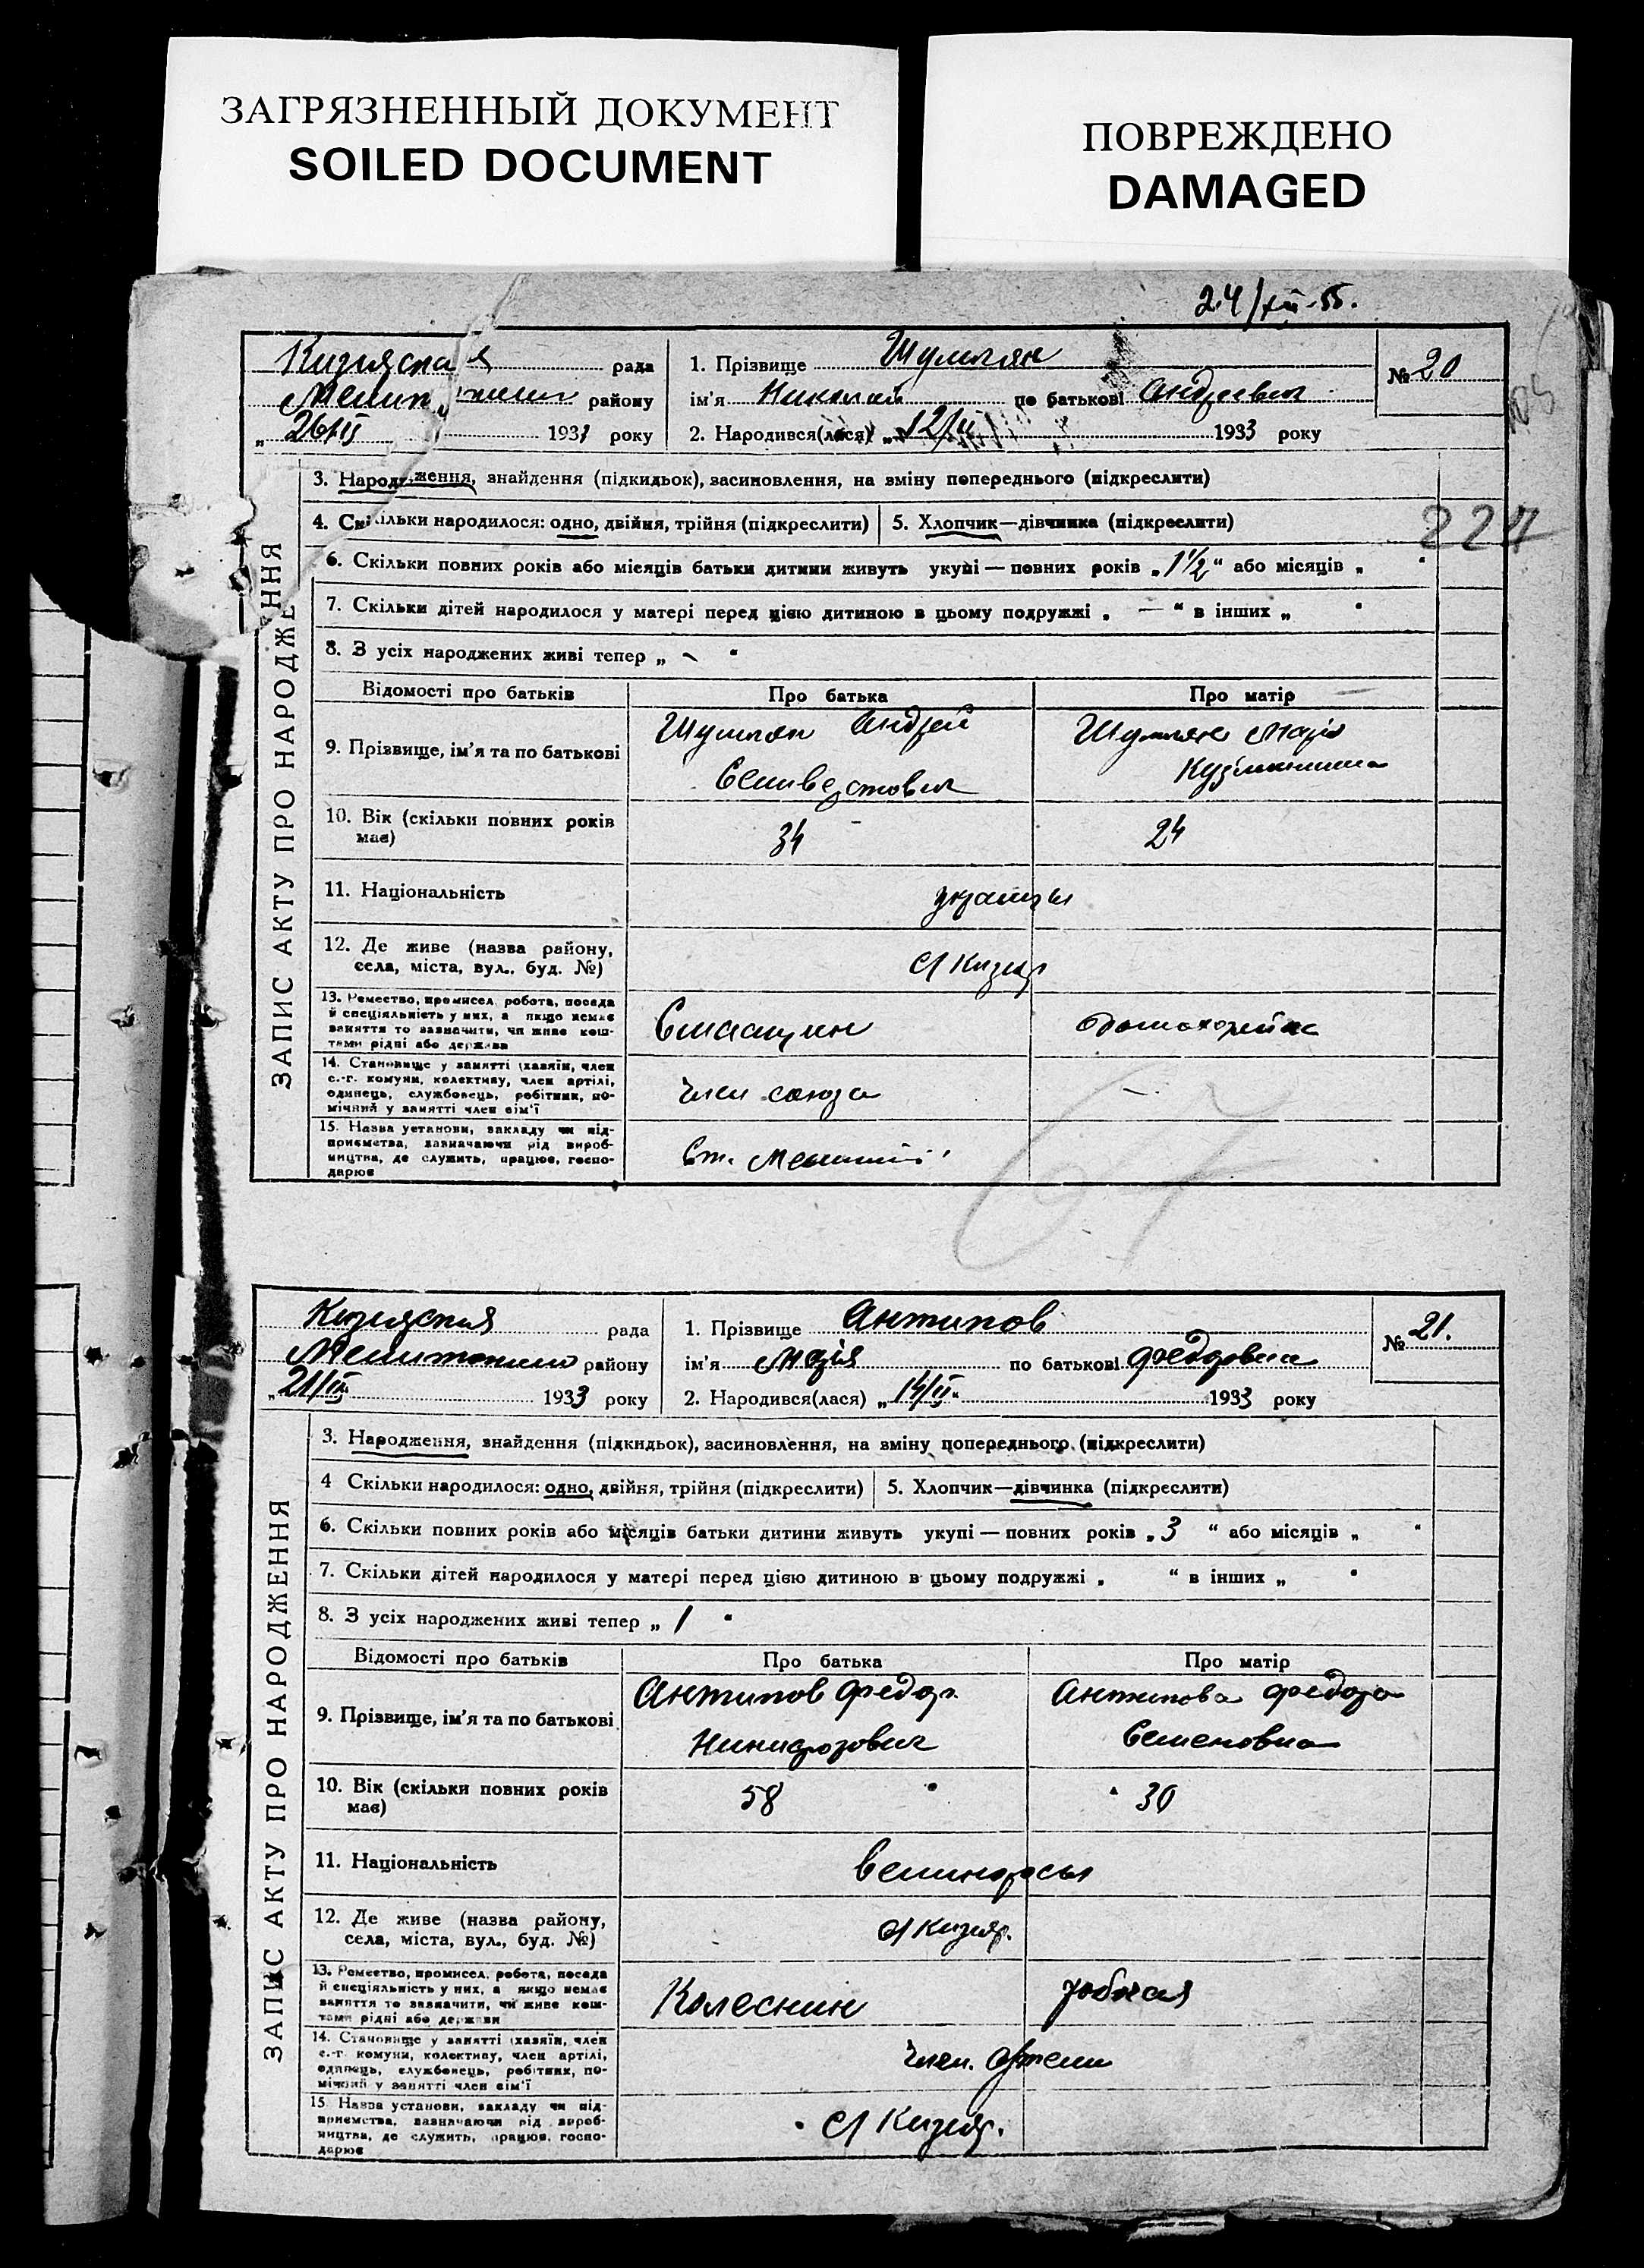 ЗАГРЯЗНЕННЫЙ ДОКУМЕНТ
SOILED DOCUMENT
ПОВРЕЖДЕНО
DAMAGED
24/XII-55.
Кизиярская рада
1. Прізвище Шумлян
№ 20
району
ім'я Николай по батькові Андреевич
26/II 1933 року
2. Народився(лася) „12/II 1933 року
227
ЗАПИС АКТУ ПРО НАРОДЖЕННЯ
3. Народження, знайдення (підкидьок), засиновлення, на зміну попереднього (підкреслити)
4. Скільки народилося: одно, двійня, трійня (підкреслити) 5. Хлопчик—дівчинка (підкреслити)
6. Скільки повних років або місяців батьки дитини живуть укупі — повних років „1½" або місяців „ "
7. Скільки дітей народилося у матері перед цією дитиною в цьому подружжі „ — " в інших „ "
8. З усіх народжених живі тепер „ - "
Відомості про батьків Про батька Про матір
9. Прізвище, ім'я та по батькові
Шумлян Андрей
Селиверстович
Шумлян Марія
10. Вік (скільки повних років має) 34 24
11. Національність украінцы
12. Де живе (назва району, села, міста, вул., буд. №) с/ Кизияр
13. Ремество, промисел, робота, посада
й спеціяльність у них, а якщо немає
заняття то зазначити, чи живе кош-
тами рідні або держава
домохозяйка
14. Становище у занятті (хазяїн, член
с.-г. комуни, колективу, член артілі,
одинець, службовець, робітник, по-
мічний у занятті член сім'ї
член союза —
15. Назва установи, закладу чи під-
приємства, зазначаючи рід вироб-
ництва, де служить, працює, госпо-
дарює
Ст. Мелитоп.
Кизиярская рада
1. Прізвище Антипов
№ 21.
району
ім'я Марія по батькові Федоровна
„21/II 1933 року
2. Народився(лася) „14/II 1933 року
ЗАПИС АКТУ ПРО НАРОДЖЕННЯ
3. Народження, знайдення (підкидьок), засиновлення, на зміну попереднього (підкреслити)
4 Скільки народилося: одно, двійня, трійня (підкреслити) 5. Хлопчик—дівчинка (підкреслити)
6. Скільки повних років або місяців батьки дитини живуть укупі — повних років „3 " або місяців „ "
7. Скільки дітей народилося у матері перед цією дитиною в цьому подружжі „ " в інших „ "
8. З усіх народжених живі тепер „ 1 "
Відомості про батьків Про батька Про матір
9. Прізвище, ім'я та по батькові
Антипов Федор
Никифорович
Антипова Федора
Семеновна
10. Вік (скільки повних років має) 58 30
11. Національність великоросы
12. Де живе (назва району, села, міста, вул., буд. №) с/ Кизияр.
13. Ремество, промисел, робота, посада
й спеціяльність у них, а якщо немає
заняття то зазначити, чи живе кош-
тами рідні або держави
Колесник рабочая
14. Становище у занятті (хазяїн, член
с.-г. комуни, колективу, член артілі,
одинець, службовець, робітник, по-
мічний у занятті член сім'ї
член. Артели
15 Назва установи, закладу чи під-
приємства, зазначаючи рід вироб-
ництва, де служить, працює, госпо-
дарює
с/ Кизияр.